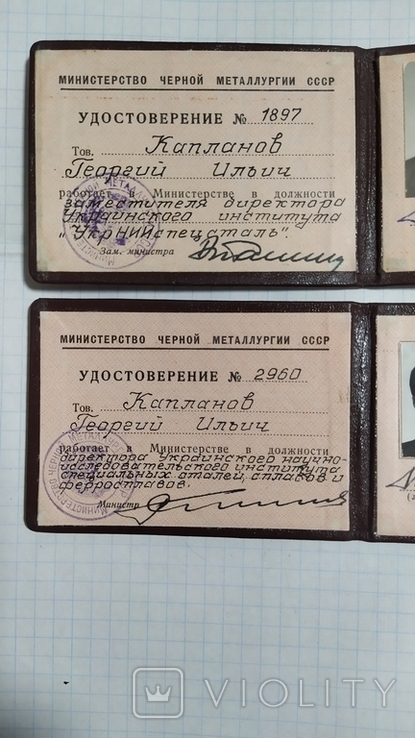 МИНИСТЕРСТВО ЧЕРНОЙ МЕТАЛЛУРГИИ СССР
УДОСТОВЕРЕНИЕ № 1897
Тов. Капланов
Георгий Ильич
работает в Министерстве в должности
заместителя директора
Украинского института
„УкрНИИспецсталь".
Зам. министра
МИНИСТЕРСТВО ЧЕРНОЙ МЕТАЛЛУРГИИ СССР
УДОСТОВЕРЕНИЕ № 2960
Тов. Капланов
Георгий Ильич
работает в Министерстве в должности
директора Украинского научно-
исследовательского института
специальных сталей, сплавов и
ферросплавов.
Министр
VIOLITY